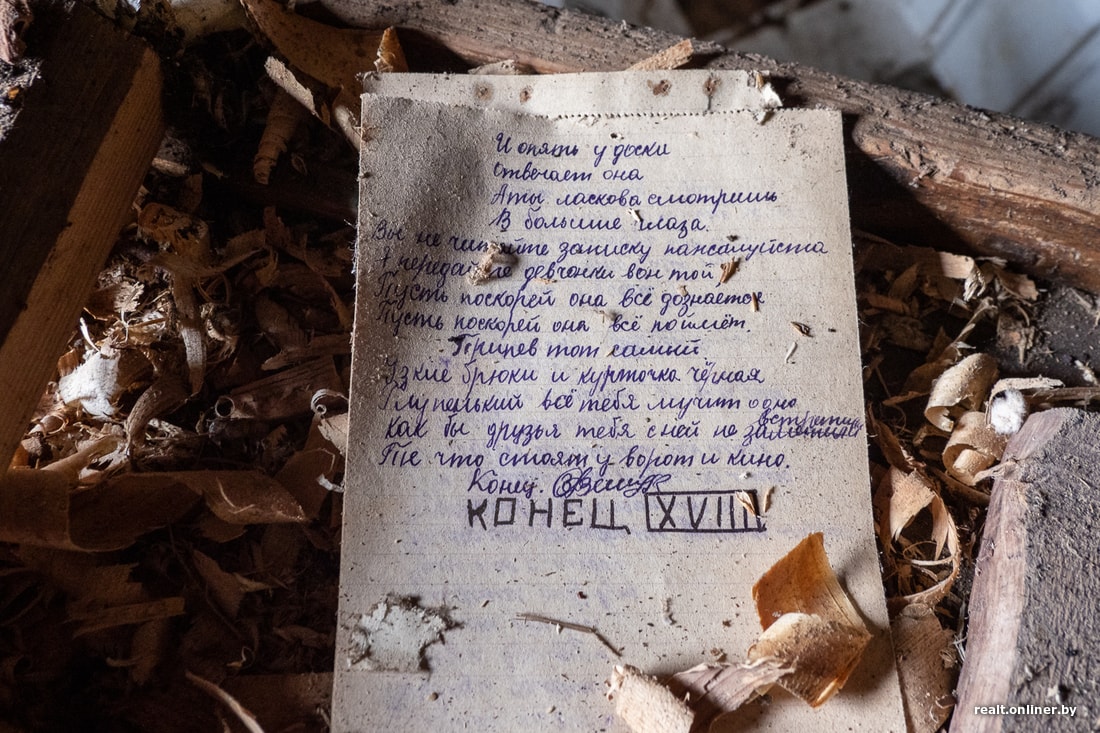 И опять у доски
Отвечает она
А ты ласкова смотришь
В большие глаза.
Вы не читайте записку пажалуйста
девчонки вон той
Пусть поскорей она всё дознается
Пусть поскорей она всё поймёт.
Припев тот самый.
Узкие брюки и курточка чёрная
Глупенький всё тебя мучит одно
Как бы друзья тебя с ней не встретили
Те что стоят у ворот и кино.
Конец.
КОНЕЦ XVIII
realt.onliner.by